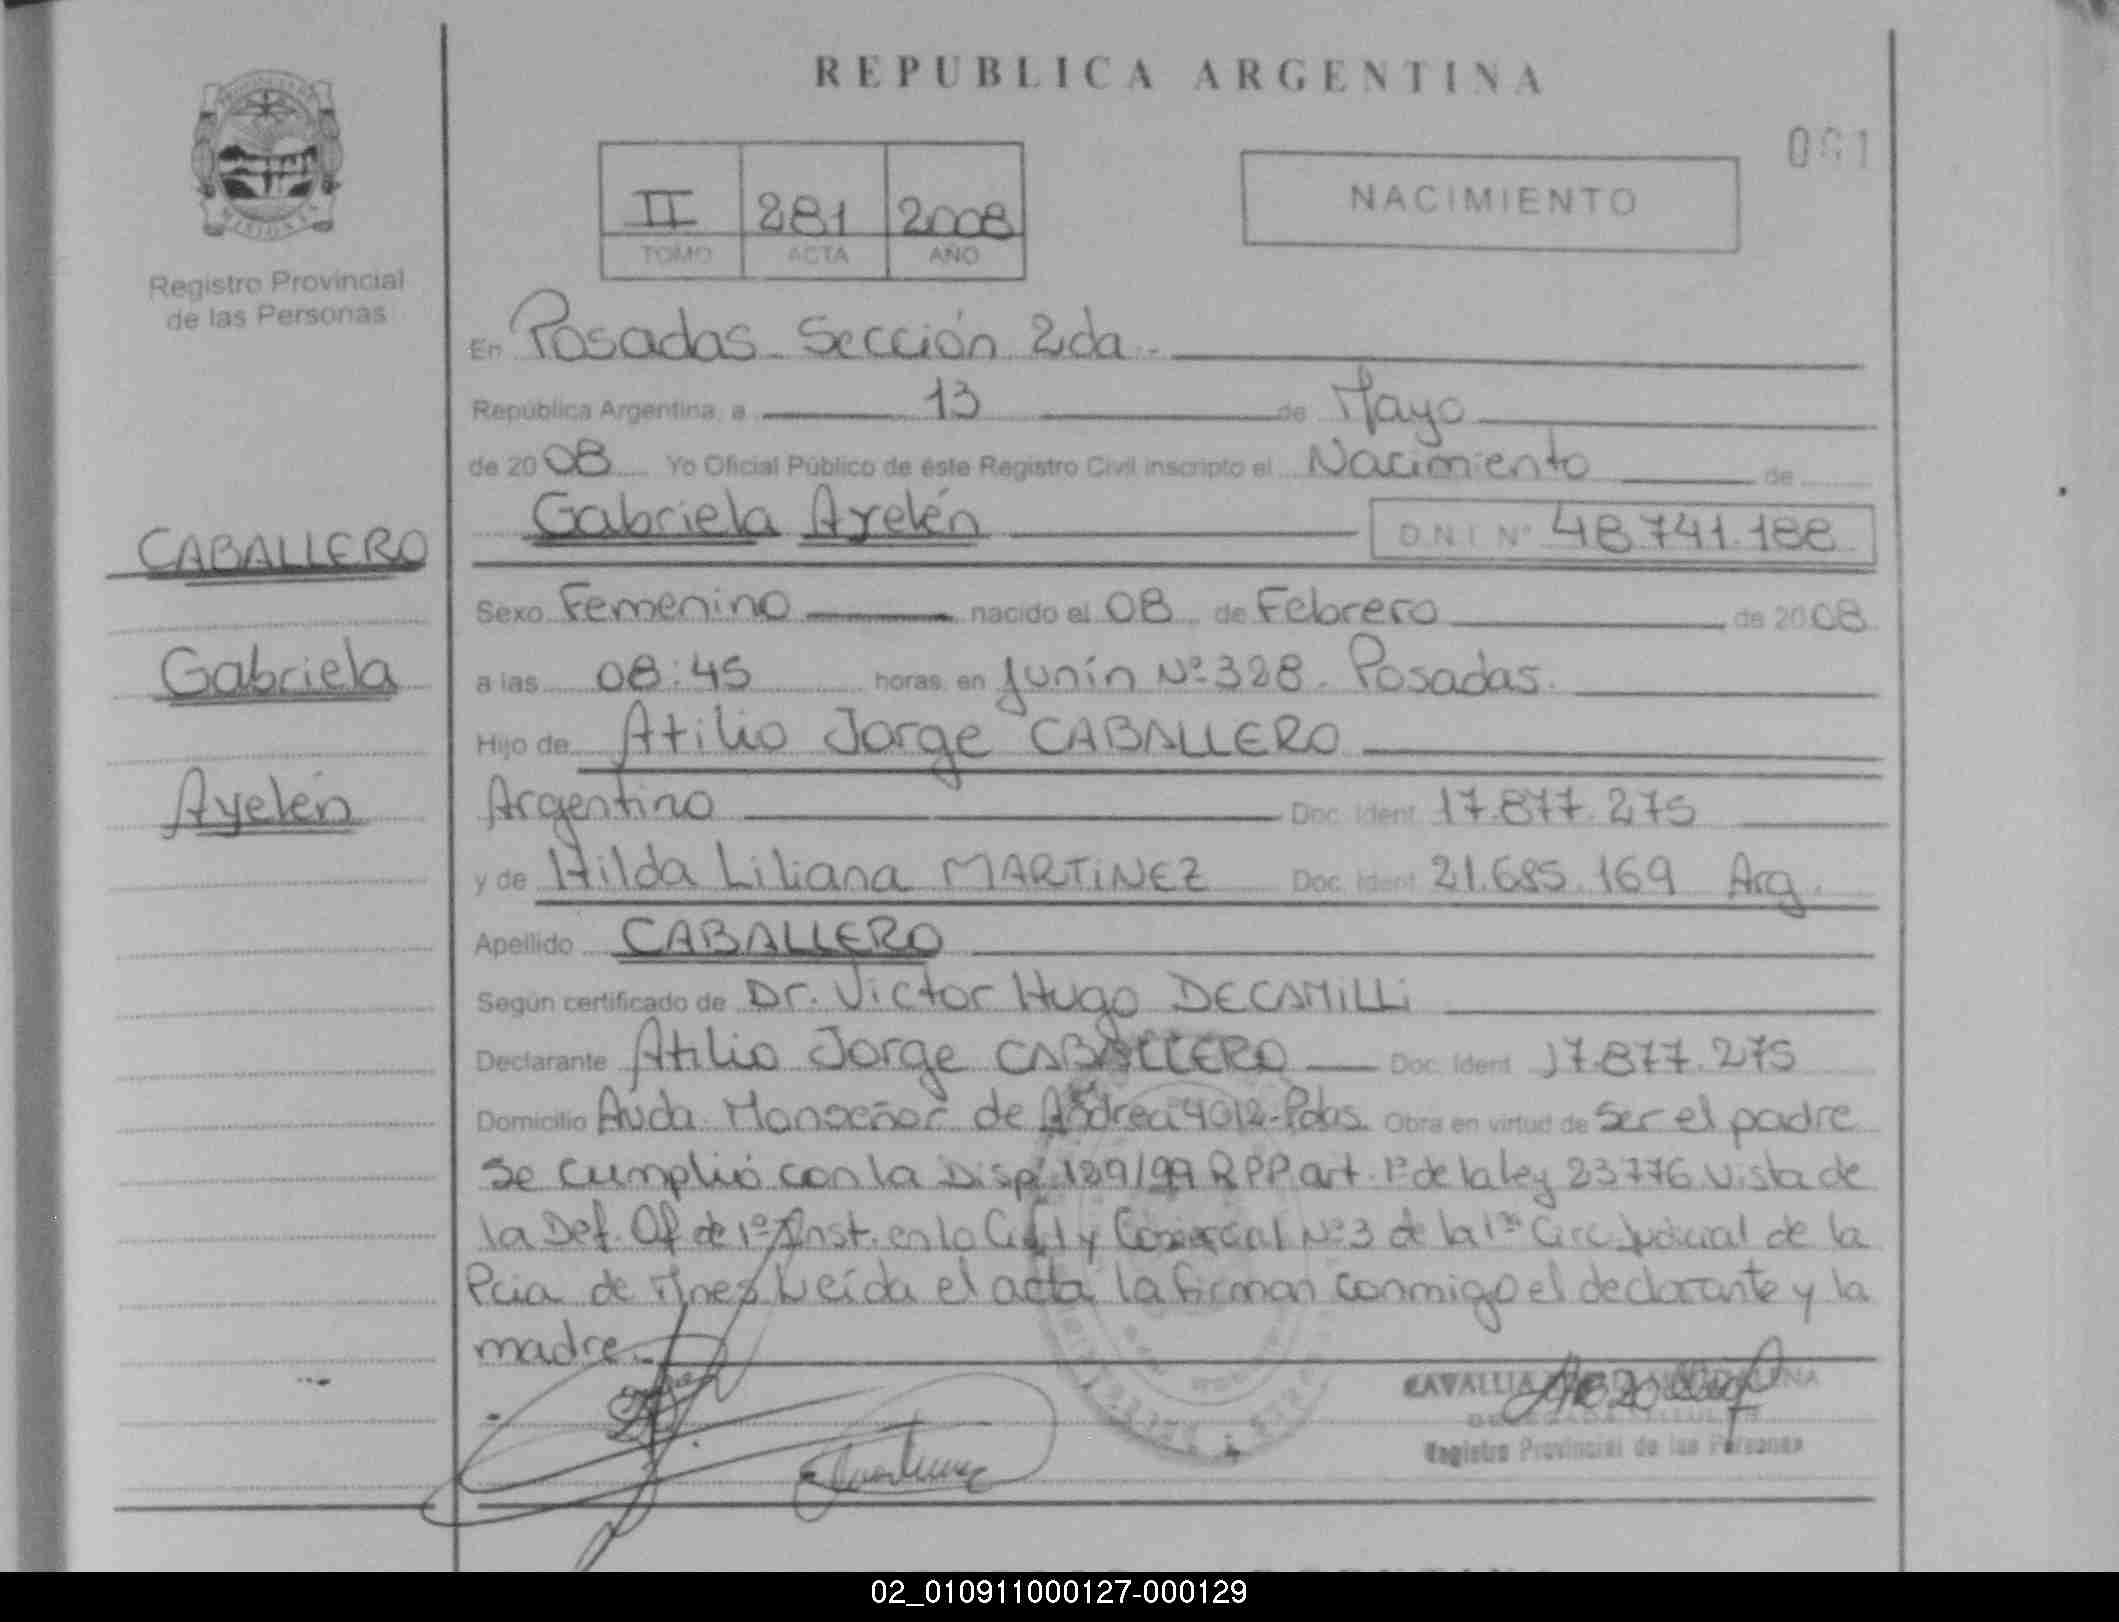 REPUBLICA ARGENTINA
NACIMIENTO
II 281 2008
TOMO ACTA AÑO
Registro Provincial
de las Personas
En Posadas Sección 2da.
República Argentina, a 13 de Mayo
de 2008 Yo Oficial Público de éste Registro Civil inscripto el Nacimiento de
Gabriela Ayelén D N I Nº 48.741.188
CABALLERO
Sexo Femenino nacido el 08 de Febrero de 2008
Gabriela
a las 08:45 horas, en Junín Nº 328. Posadas.
Hijo de Atilio Jorge CABALLERO
Ayelén
Argentino Doc. Ident. 17.877.275
y de Hilda Liliana MARTINEZ Doc. Ident. 21.685.169 Arg.
Apellido CABALLERO
Según certificado de Dr. Victor Hugo DECAMILLI
Declarante Atilio Jorge CABALLERO Doc. Ident. 17.877.275
Domicilio Avda. Monseñor de Andrea 4012-Pdas. Obra en virtud de ser el padre
Se cumplió con la Disp. 189/99 RPP art. 1º de la ley 23776 vista de
la Def. Of de 1º Inst. en lo Civil y Comercial Nº 3 de la 1ra Circ Judicial de la
Pcia de Mnes Leída el acta, la firman conmigo el declarante y la
madre.
Registro Provincial de las Personas
02_010911000127-000129